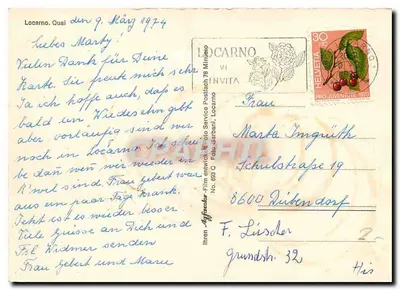 Locarno. Quai
den 9. März 1974
Liebes Marty!
Vielen Dank für Deine
Karte. Sie freute mich sehr
Ja ich hoffe auch, daß es
bald ein Wiedersehn gibt
aber vorläufig sind wir
noch in Locarno. Ich
be dañ weñ wir wieder in
sind. Frau Gebert war
aus ein paar Tage krank.
Jetzt ist es wieder besser.
Viele Grüsse an Dich und
Frl. Widmer senden
Frau Gebert und Marie
Ihren Agfacolor-Film entwickelt Foto Service Postfach 78 Minusio
No. 693 C Foto Garbani, Locarno
LOCARNO
VI
INVITA
30
HELVETIA
PRO JUVENTUTE
Frau
Marta Imgrüth
Schulstrasse 19
8600 Dübendorf
F. Lüscher
Grundstr. 32
2-